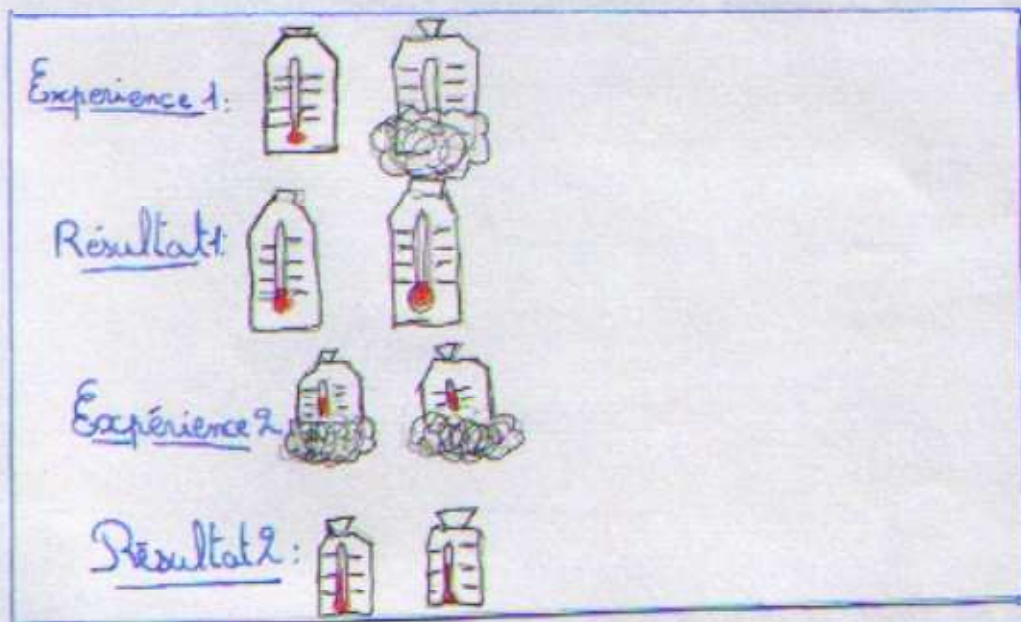 Experience 1:
Résultat1:
Expérience 2
Résultat2: